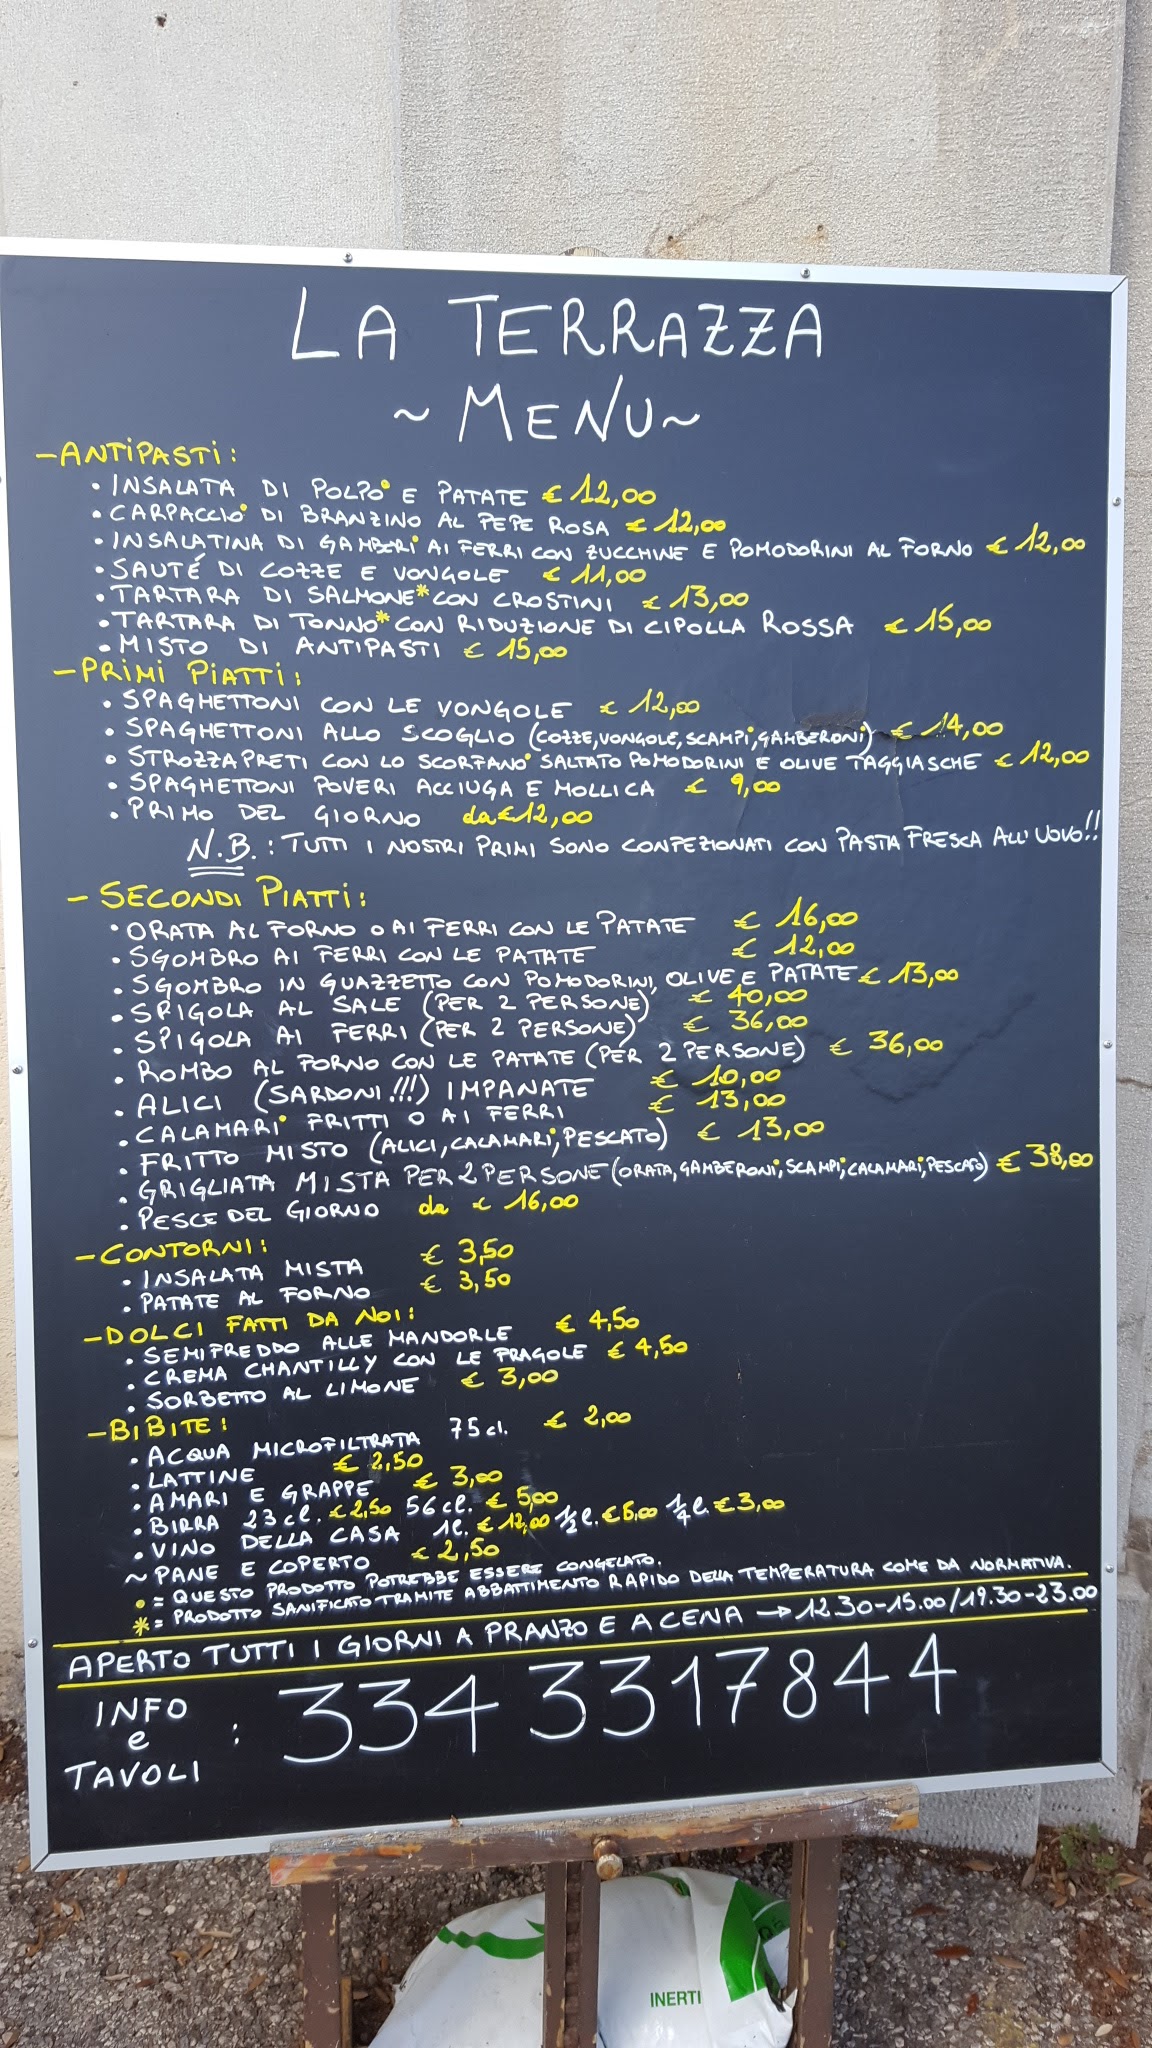 LA TERRAZZA
~ MENU ~
- ANTIPASTI:
• INSALATA DI POLPO• E PATATE € 12,00
• CARPACCIO• DI BRANZINO AL PEPE ROSA € 12,00
• INSALATINA DI GAMBERI• AI FERRI CON ZUCCHINE E POMODORINI AL FORNO € 12,00
• SAUTÉ DI COZZE E VONGOLE € 11,00
• TARTARA DI SALMONE* CON CROSTINI € 13,00
• TARTARA DI TONNO* CON RIDUZIONE DI CIPOLLA ROSSA € 15,00
• MISTO DI ANTIPASTI € 15,00
- PRIMI PIATTI:
• SPAGHETTONI CON LE VONGOLE € 12,00
• SPAGHETTONI ALLO SCOGLIO (COZZE, VONGOLE, SCAMPI•, GAMBERONI•) € 14,00
• STROZZAPRETI CON LO SCORFANO• SALTATO POMODORINI E OLIVE TAGGIASCHE € 12,00
• SPAGHETTONI POVERI ACCIUGA E MOLLICA € 9,00
• PRIMO DEL GIORNO da € 12,00
N.B.: TUTTI I NOSTRI PRIMI SONO CONFEZIONATI CON PASTA FRESCA ALL'UOVO!!
- SECONDI PIATTI:
• ORATA AL FORNO O AI FERRI CON LE PATATE € 16,00
• SGOMBRO AI FERRI CON LE PATATE € 12,00
• SGOMBRO IN GUAZZETTO CON POMODORINI, OLIVE E PATATE € 13,00
• SPIGOLA AL SALE (PER 2 PERSONE) € 40,00
• SPIGOLA AI FERRI (PER 2 PERSONE) € 36,00
• ROMBO AL FORNO CON LE PATATE (PER 2 PERSONE) € 36,00
• ALICI (SARDONI!!!) IMPANATE € 10,00
• CALAMARI• FRITTI O AI FERRI € 13,00
• FRITTO MISTO (ALICI, CALAMARI•, PESCATO) € 13,00
• GRIGLIATA MISTA PER 2 PERSONE (ORATA, GAMBERONI•, SCAMPI•, CALAMARI•, PESCATO) € 38,00
• PESCE DEL GIORNO da € 16,00
- CONTORNI:
• INSALATA MISTA € 3,50
• PATATE AL FORNO € 3,50
- DOLCI FATTI DA NOI:
• SEMIFREDDO ALLE MANDORLE € 4,50
• CREMA CHANTILLY CON LE FRAGOLE € 4,50
• SORBETTO AL LIMONE € 3,00
- BIBITE:
• ACQUA MICROFILTRATA 75 cl. € 2,00
• LATTINE € 2,50
• AMARI E GRAPPE € 3,00
• BIRRA 23 cl. € 2,50 56 cl. € 5,00
• VINO DELLA CASA 1l. € 12,00 1/2 l. € 6,00 1/4 l. € 3,00
~ PANE E COPERTO € 2,50
• = QUESTO PRODOTTO POTREBBE ESSERE CONGELATO.
* = PRODOTTO SANIFICATO TRAMITE ABBATTIMENTO RAPIDO DELLA TEMPERATURA COME DA NORMATIVA.
APERTO TUTTI I GIORNI A PRANZO E A CENA → 12.30-15.00/19.30-23.00
INFO e TAVOLI : 334 3317844
INERTI